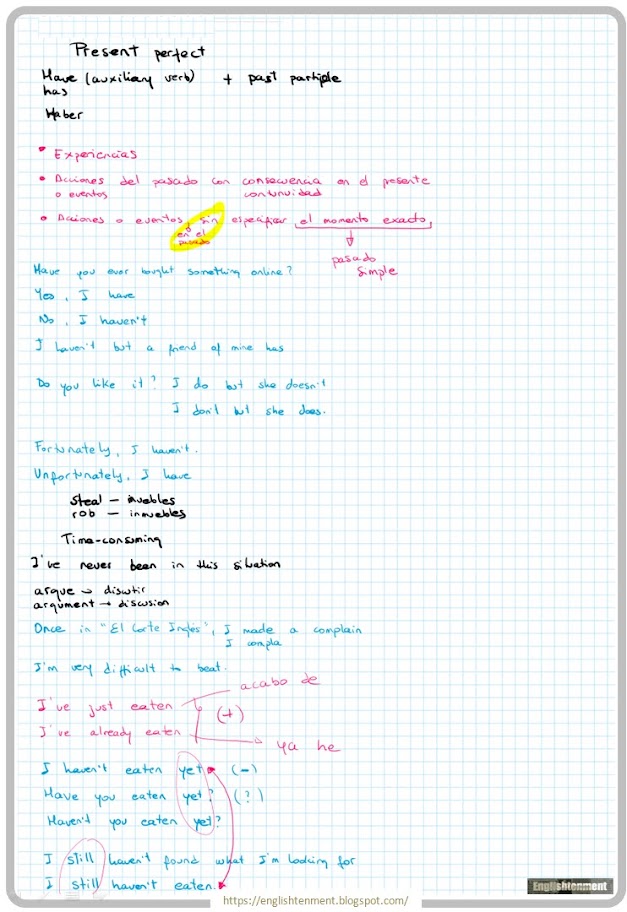 Present perfect
Have (auxiliary verb) + past partiple
has
Haber
• Experiencias
• Acciones del pasado con consecuencia en el presente
o eventos continuidad
• Acciones o eventos sin especificar el momento exacto
en el
pasado
pasado
simple
Have you ever bought something online?
Yes, I have
No, I haven't
I haven't but a friend of mine has
Do you like it? I do but she doesn't
I don't but she does.
Fortunately, I haven't.
Unfortunately, I have
steal – muebles
rob – inmuebles
Time-consuming
I've never been in this situation
argue → discutir
argument → discusion
Once in "El Corte Inglés", I made a complain
I compla
I'm very difficult to beat.
acabo de
I've just eaten
(+)
I've already eaten
ya he
I haven't eaten yet (-)
Have you eaten yet? (?)
Haven't you eaten yet?
I still haven't found what I'm looking for
I still haven't eaten.
Englishtenment
https://englishtenment.blogspot.com/